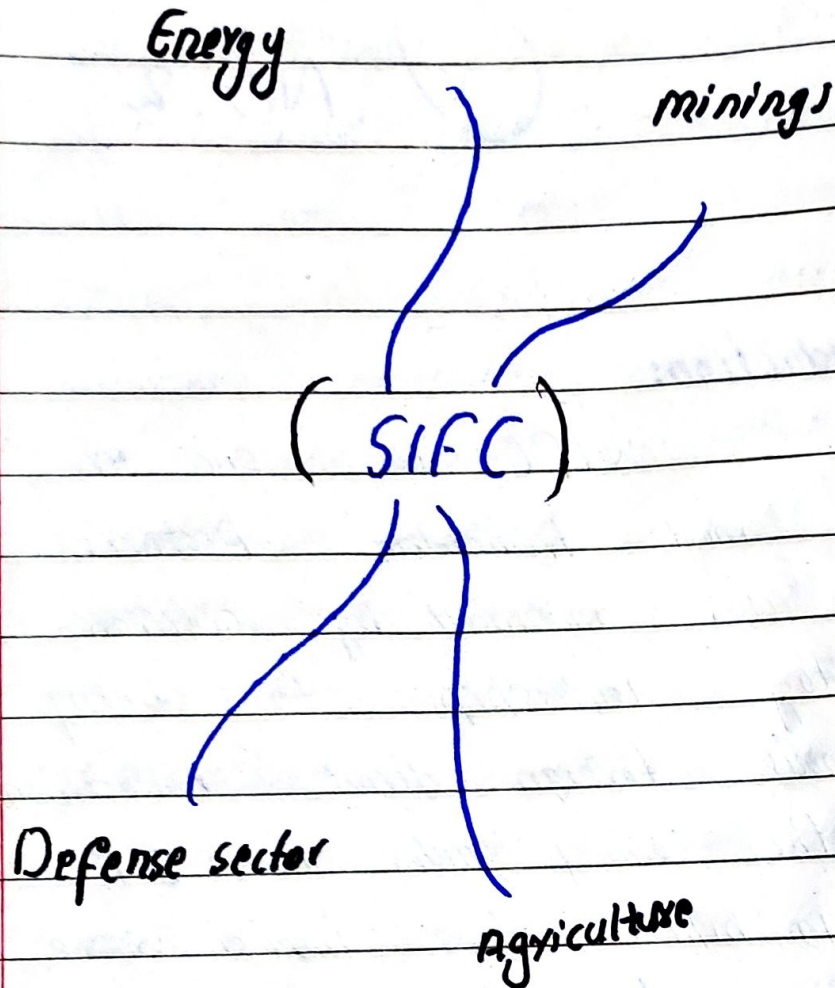 Energy
minings
( SIFC )
Defense sector
Agriculture